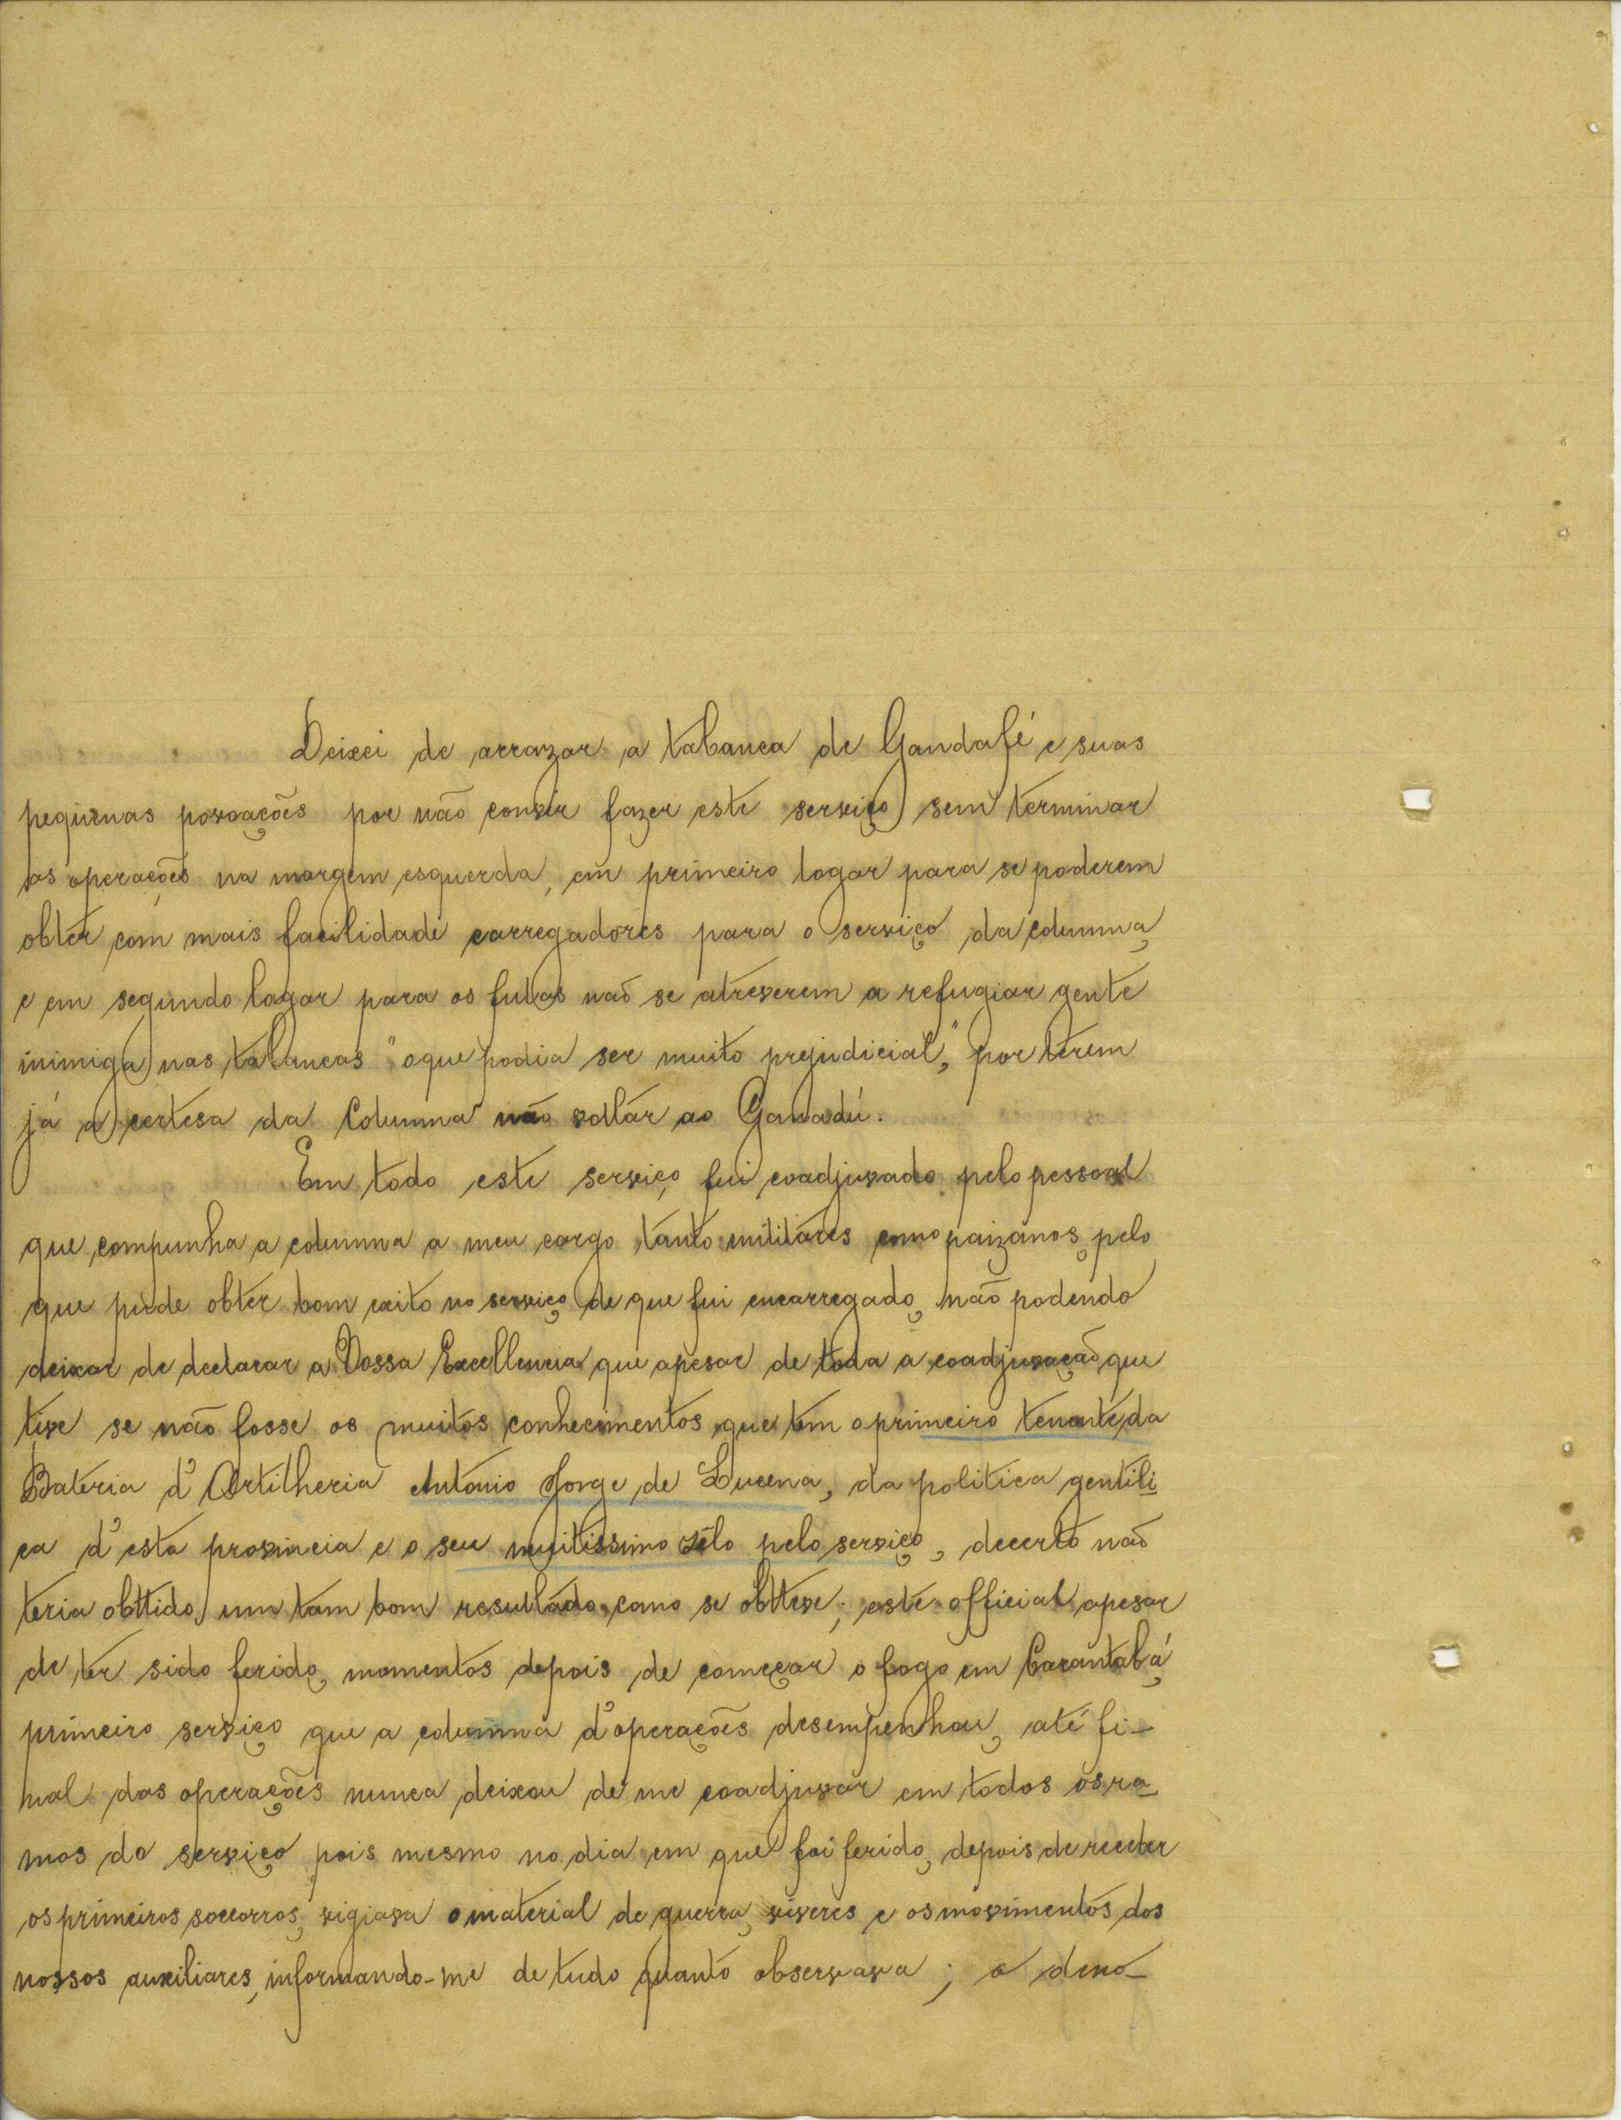 Deixei de arrazar a tabanca de Gandafé e suas
pequenas povoações por não convir fazer este serviço sem terminar
as operações na margem esquerda, em primeiro logar para se poderem
obter com mais facilidade carregadores para o serviço da columna,
e em segundo logar para os fulas não se atreverem a refugiar gente
inimiga nas tabancas "oque podia ser muito prejudicial," por terem
já a certesa da Columna não voltar ao Ganadú.
Em todo este serviço fui coadjuvado pelo pessoal
que compunha a columna a meu cargo tanto militares como paizanos, pelo
que pude obter bom exito no serviço de que fui encarregado, não podendo
deixar de declarar a Vossa Excellencia que apesar de toda a coadjuvação que
tive se não fosse os muitos conhecimentos que tem o primeiro tenente da
Bateria d'Artilheria Antonio Jorge de Lucena, da politica gentili
ca d'esta provincia e o seu muitissimo zêlo pelo serviço, decerto não
teria obttido um tam bom resultado como se obtteve; este official apesar
de ter sido ferido, momentos depois de começar o fogo em Carantabá,
primeiro serviço que a columna d'operações desempenhou, até fi-
nal das operações nunca deixou de me coadjuvar em todos os ra-
mos do serviço pois mesmo no dia em que foi ferido, depois de receber
os primeiros soccorros, vigiava o material de guerra, viveres e os movimentos dos
nossos auxiliares, informando-me de tudo quanto observava; o deno-